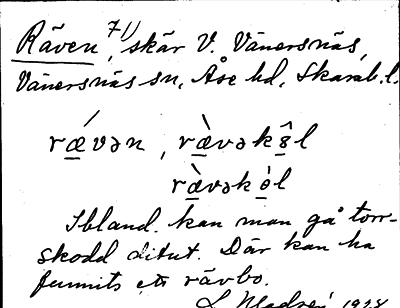 Räven, 71) skär V. Vänersnäs,
Vänersnäs sn, Åse hd, Skarab.l.
rǽvən, rævəkl
rævəkl
Ibland kan man gå torr-
skodd ditut. Där kan ha
funnits ett rävbo.
1928